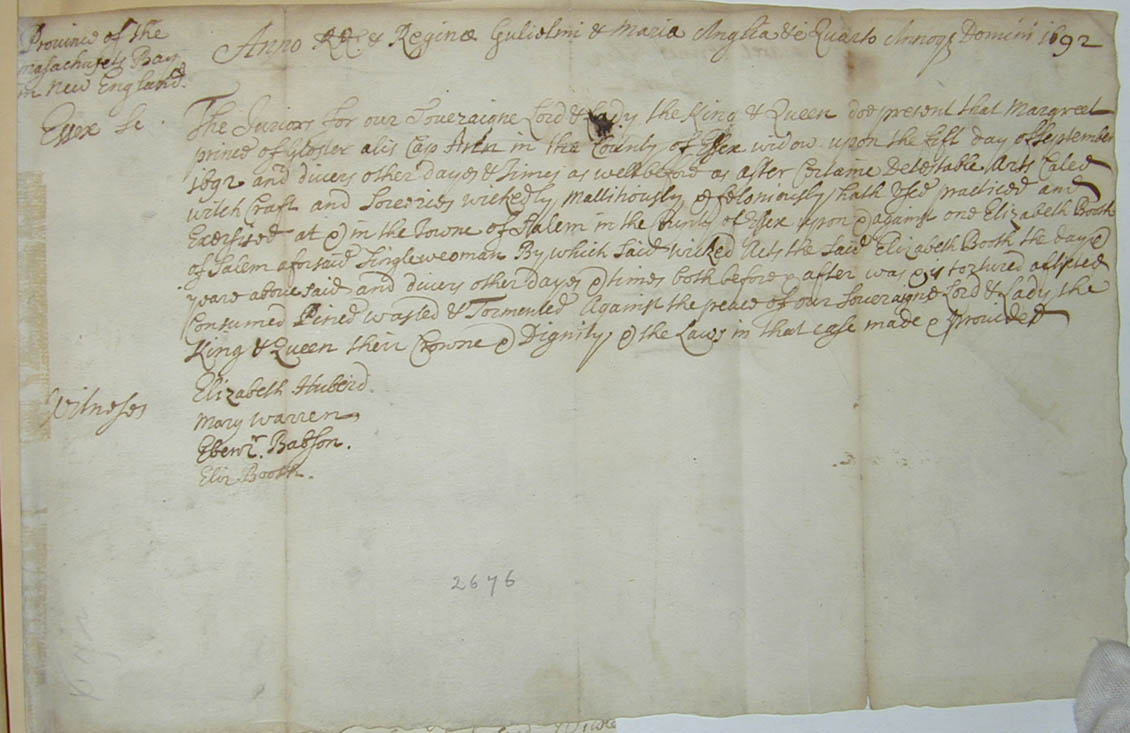 Province of the
Massachusets Bay
in New England
Anno RR & Reginæ Gulielmi & Mariæ Angliæ &c Quarto Annoq Domini 1692
Essex Sc
The Juriors for our Soveraigne Lord & Lady the King & Queen doe present that Margreet
prince of Gloster alis Cap Ann in the County of Essex widow upon the fift day of September
1692 and divers other dayes & Times as well before as after Certaine Detestable Arts Caled
witch Craft and Soresries wickedly Mallitiously & feloniously hath Used practiced and
Exersised at & in the Towne of Salem in the County of Essex upon & against one Elizabeth Booth
of Salem aforsaid Singlewoman By which Said wicked Acts the Said Elizabeth Booth the day &
yeare above said and divers other dayes & times both before & after was & is tortured aflicted
Consumed Pined wasted & Tormented Against the peace of our Soveraigne Lord & Lady the
King & Queen their Crowne & Dignity & the Laws in that case made & provided
Witneses
Elizabeth Huberd
Mary Warren
Ebenr. Babson.
Eliz Booth.
2676